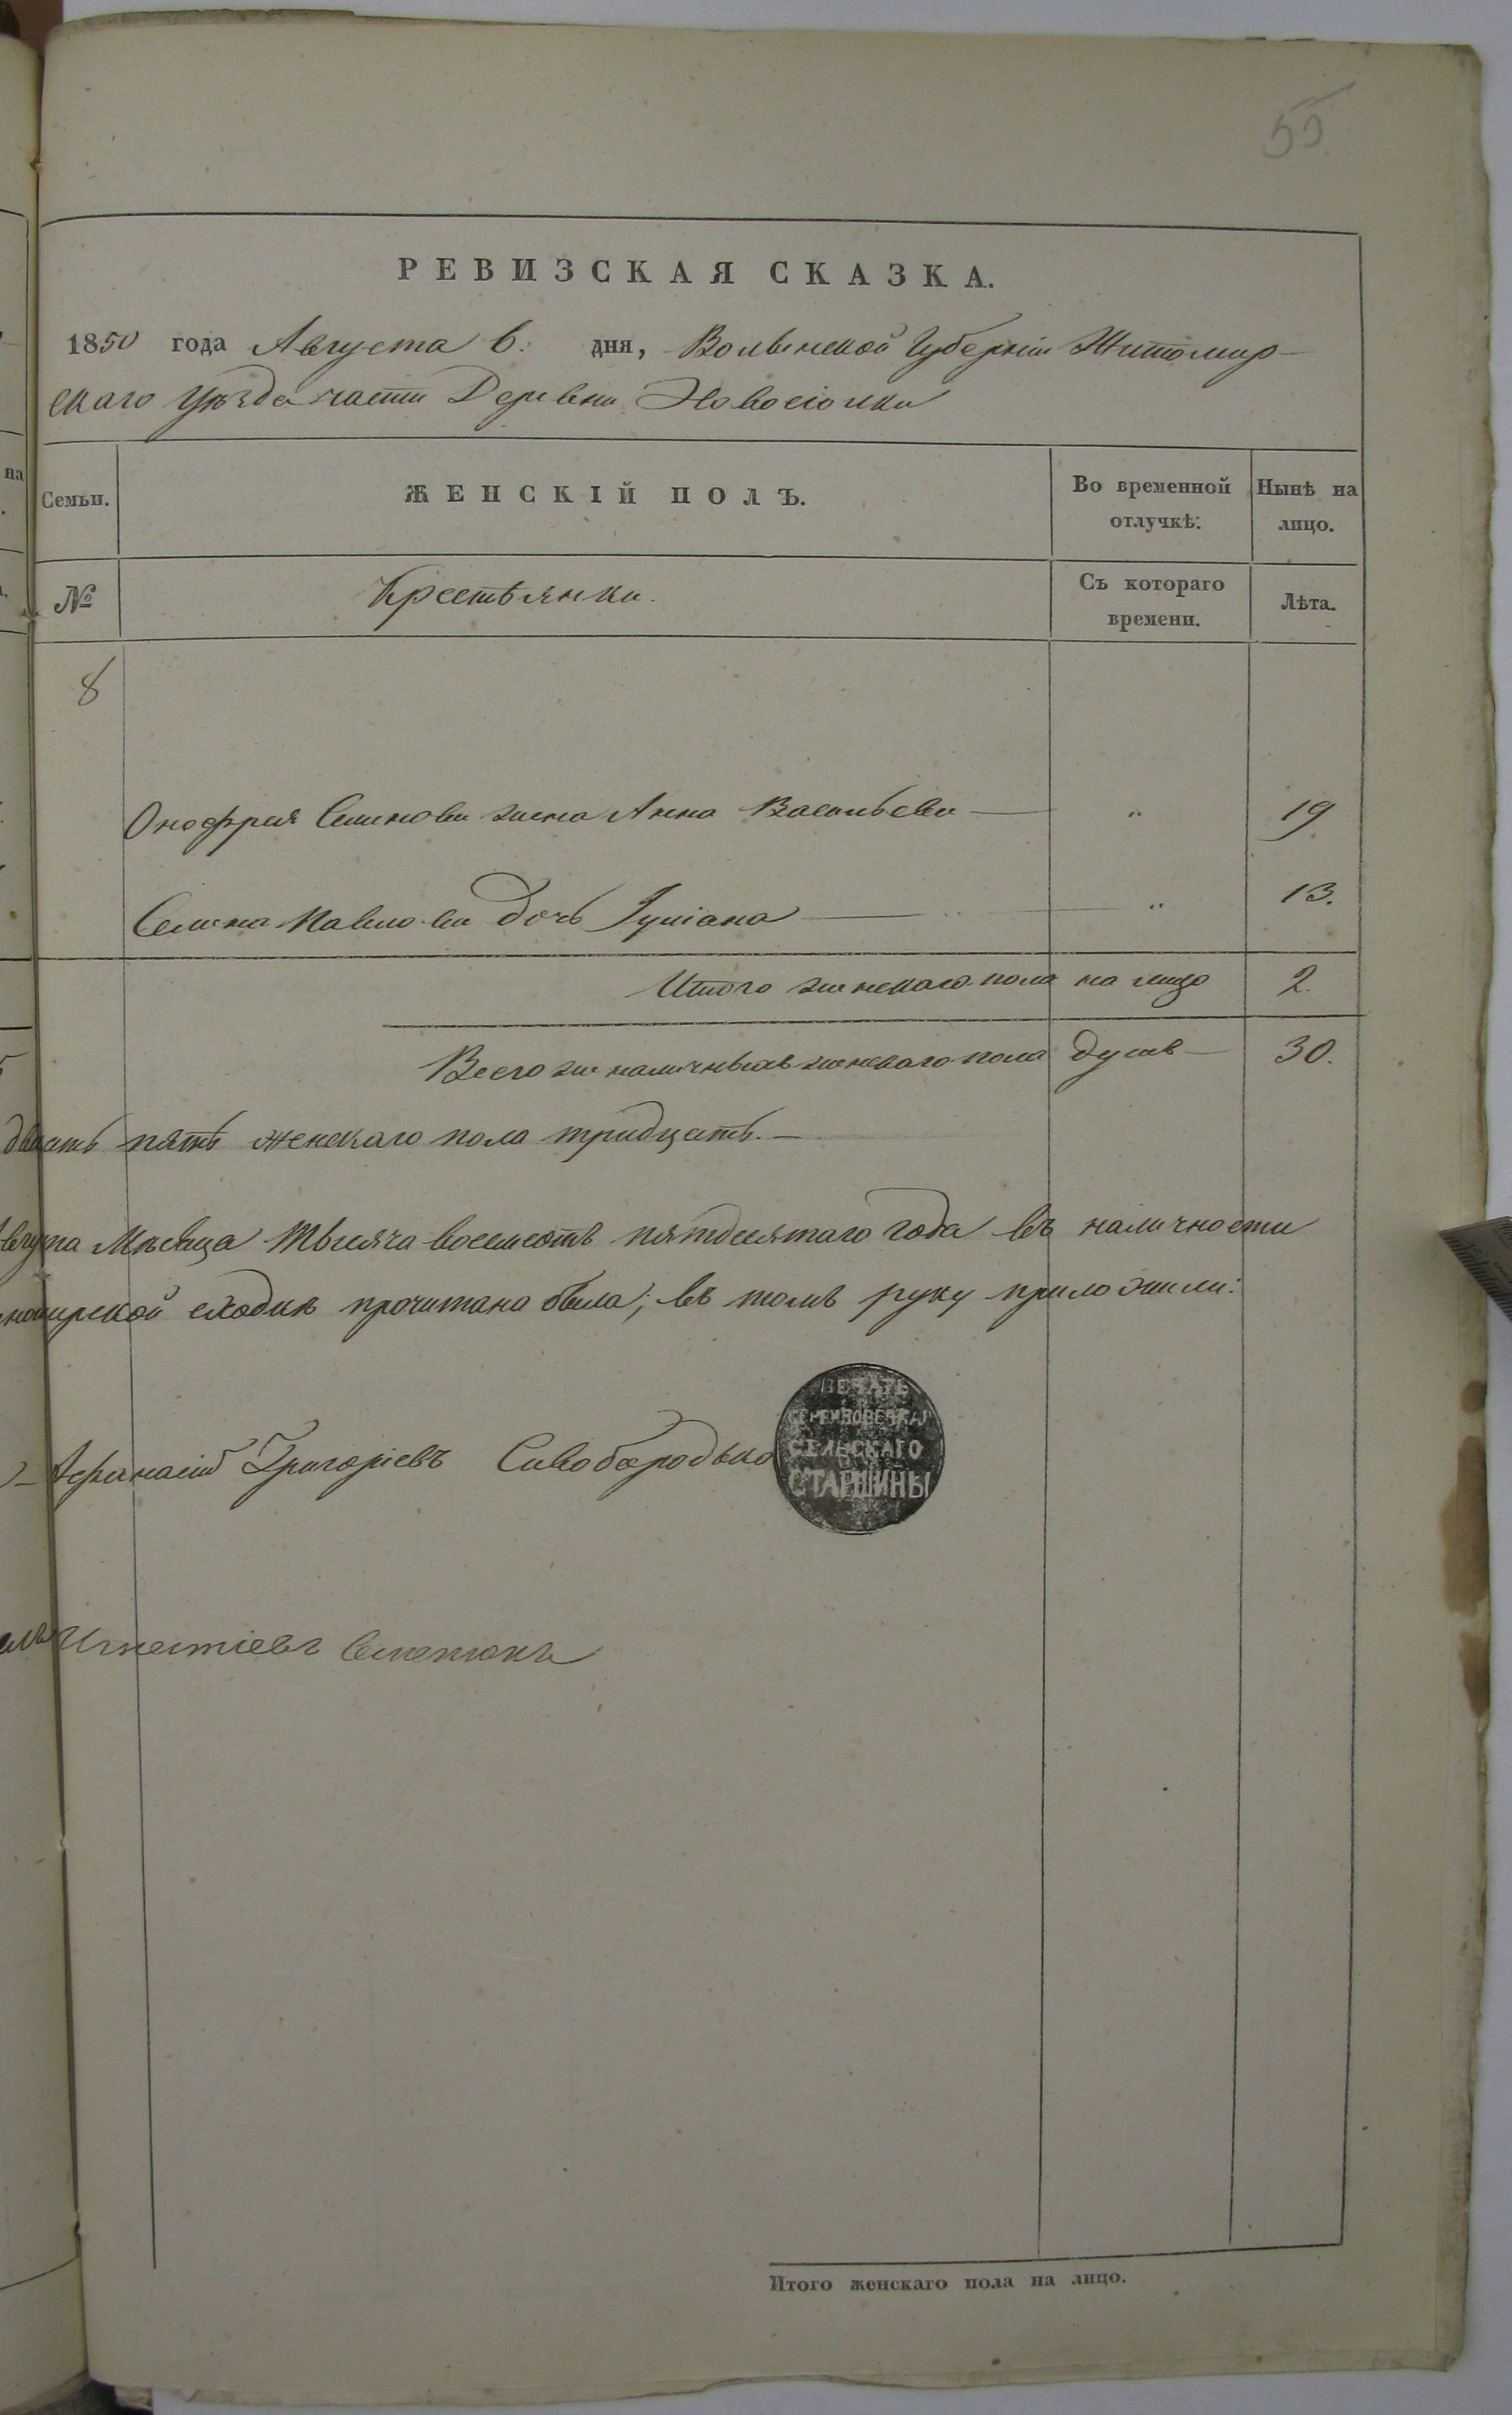 55
РЕВИЗСКАЯ СКАЗКА.
1850 года Августа 6. дня, Волынской Губерніи Житомир-
скаго Уѣзда части Деревни Новосіолки
Семьи. ЖЕНСКІЙ ПОЛЪ. Во временной отлучкѣ: Нынѣ на лицо.
№ Крестьянки. Съ котораго времени. Лѣта.
8
Онофрия Семенова жена Анна Васильева — " 19
Семена Павлова дочь Іуліана — " 13.
Итого женскаго пола на лицо 2.
Всего же наличныхъ женскаго пола душъ — 30.
двадцать пять женскаго пола тридцать. —
Августа Мѣсяца тысяча восемсотъ пятдесятаго года въ наличности
сходкѣ прочитана была; въ томъ руку приложили:
Афанасій Григоріевъ Сивобородько
ПЕЧАТЬ
СЕЛЬСКАГО
СТАРШИНЫ
Игнатіевъ
Итого женскаго пола на лицо.